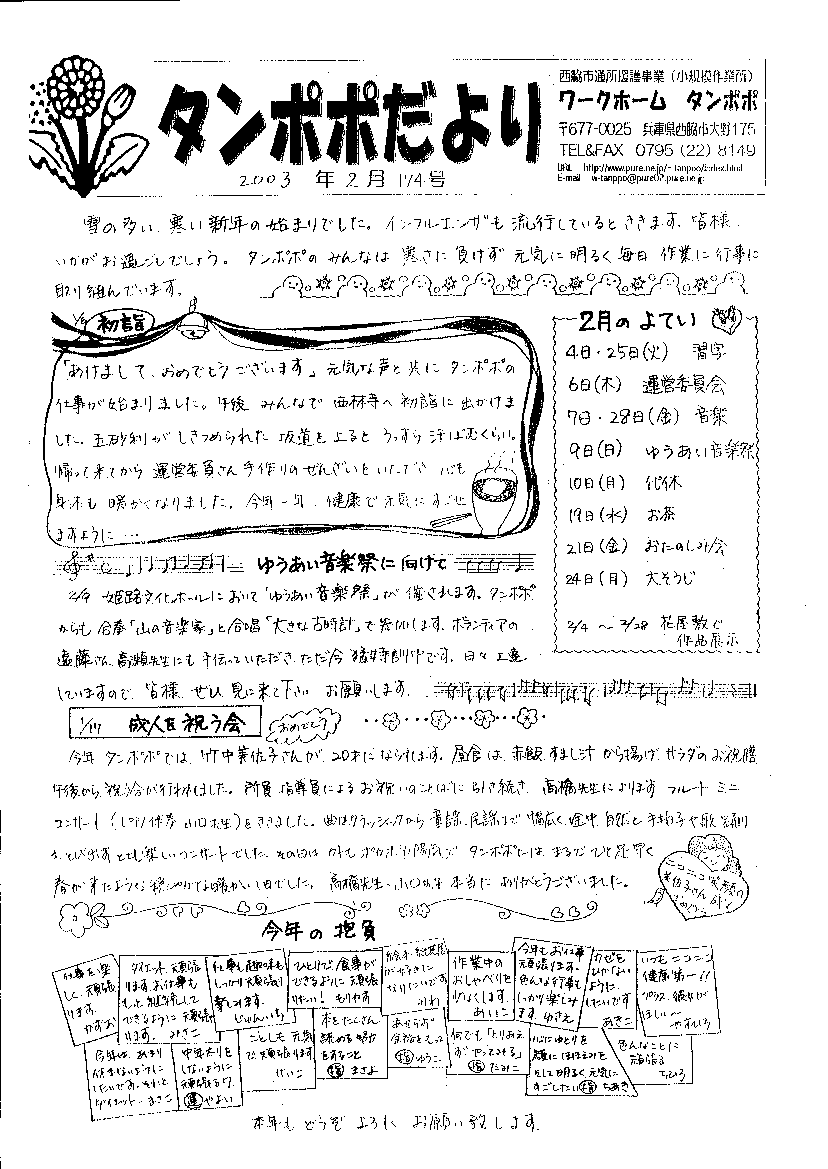 タンポポだより
2003 年 2月 174号
西脇市通所援護事業（小規模作業所）
ワークホーム タンポポ
〒677-0025 兵庫県西脇市大野175
TEL&FAX 0795 (22) 8149
雪の多い、寒い新年の始まりでした。インフルエンザも流行しているとききます。皆様
いかがお過ごしでしょう。タンポポのみんなは寒さに負けず元気に明るく毎日作業に行事に
取り組んでいます。
初詣
「あけまして、おめでとうございます」元気な声と共にタンポポの
仕事が始まりました。午後みんなで西林寺へ初詣に出かけま
した。玉砂利がしきつめられた坂道を上ると うっすら汗ばむくらい。
帰って来てから運営委員さん手作りのぜんざいをいただき 心も
身体も暖かくなりました。今年一年、健康で元気にすごせ
ますように…
2月のよてい
4日・25日(火) 習字
6日(木) 運営委員会
7日・28日(金) 音楽
9日(日) ゆうあい音楽祭
10日(月) 代休
19日(水) お茶
21日(金) おたのしみ会
24日(月) 大そうじ
2/4 〜 2/28 花屋敷で
作品展示
ゆうあい音楽祭に向けて
2/9 姫路文化ホールにおいて「ゆうあい音楽祭」が催されます。タンポポ
からも合奏「山の音楽家」と合唱「大きな古時計」で参加します。ボランティアの
遠藤さん、高瀬先生にも手伝っていただき、ただ今猛特訓中です。日々上達
していますので、皆様、ぜひ見に来て下さい お願いします。
1/17 成人を祝う会
おめでとう
今年タンポポでは、竹中美佐子さんが、20才になられます。昼食は、赤飯、すまし汁、から揚げ、サラダのお祝膳
午後から、祝う会が行われました。所員、指導員によるお祝いのことばに引き続き、高橋先生によります フルート ミニ
コンサート（ピアノ伴奏 山口先生）をききました。曲はクラッシックから童謡、民謡まで幅広く、途中、自然と手拍子や歌、踊り
もとび出すとても楽しいコンサートでした。その日は外もポカポカ陽気で タンポポには、まるでひと足早く
春が来たような穏やかな暖かい1日でした。高橋先生・山口先生本当にありがとうございました。
ニコニコ笑顔の
美佐子さん
今年の抱負
仕事を楽しく、頑張ります。 かずお
ダイエット頑張ります。お仕事ももっと継続してできるように頑張ります。 みさこ
仕事も趣味もしっかり頑張って
じゅんいち
ひとりで、食事ができるように頑張りたい！ もりやす
絵本・紙芝居が好きに なりたいです みわ
作業中のおしゃべりを少なくします。 あいこ
今年もお仕事頑張ります。色んな行事もしっかり楽しみます。 ゆきえ
カゼをひかないように、したいです あきこ
いつもニコニコ健康第一!!
プラス、彼女がほしい〜 やすひろ
今年は、あまり
ダイエット…… まさこ
中年太りをしないように頑張るワ。 (運)やよい
ことしも元気で頑張ります けいこ
本をたくさん読める努力をすること (指)まさよ
(指)ゆうこ
何でも「とりあえずやってみる」 (指)たみこ
心にゆとりを 顔にほほえみを そして明るく元気にすごしたい (指)ちあき
色んなことに頑張る ちひろ
本年もどうぞ よろしく お願い致します。